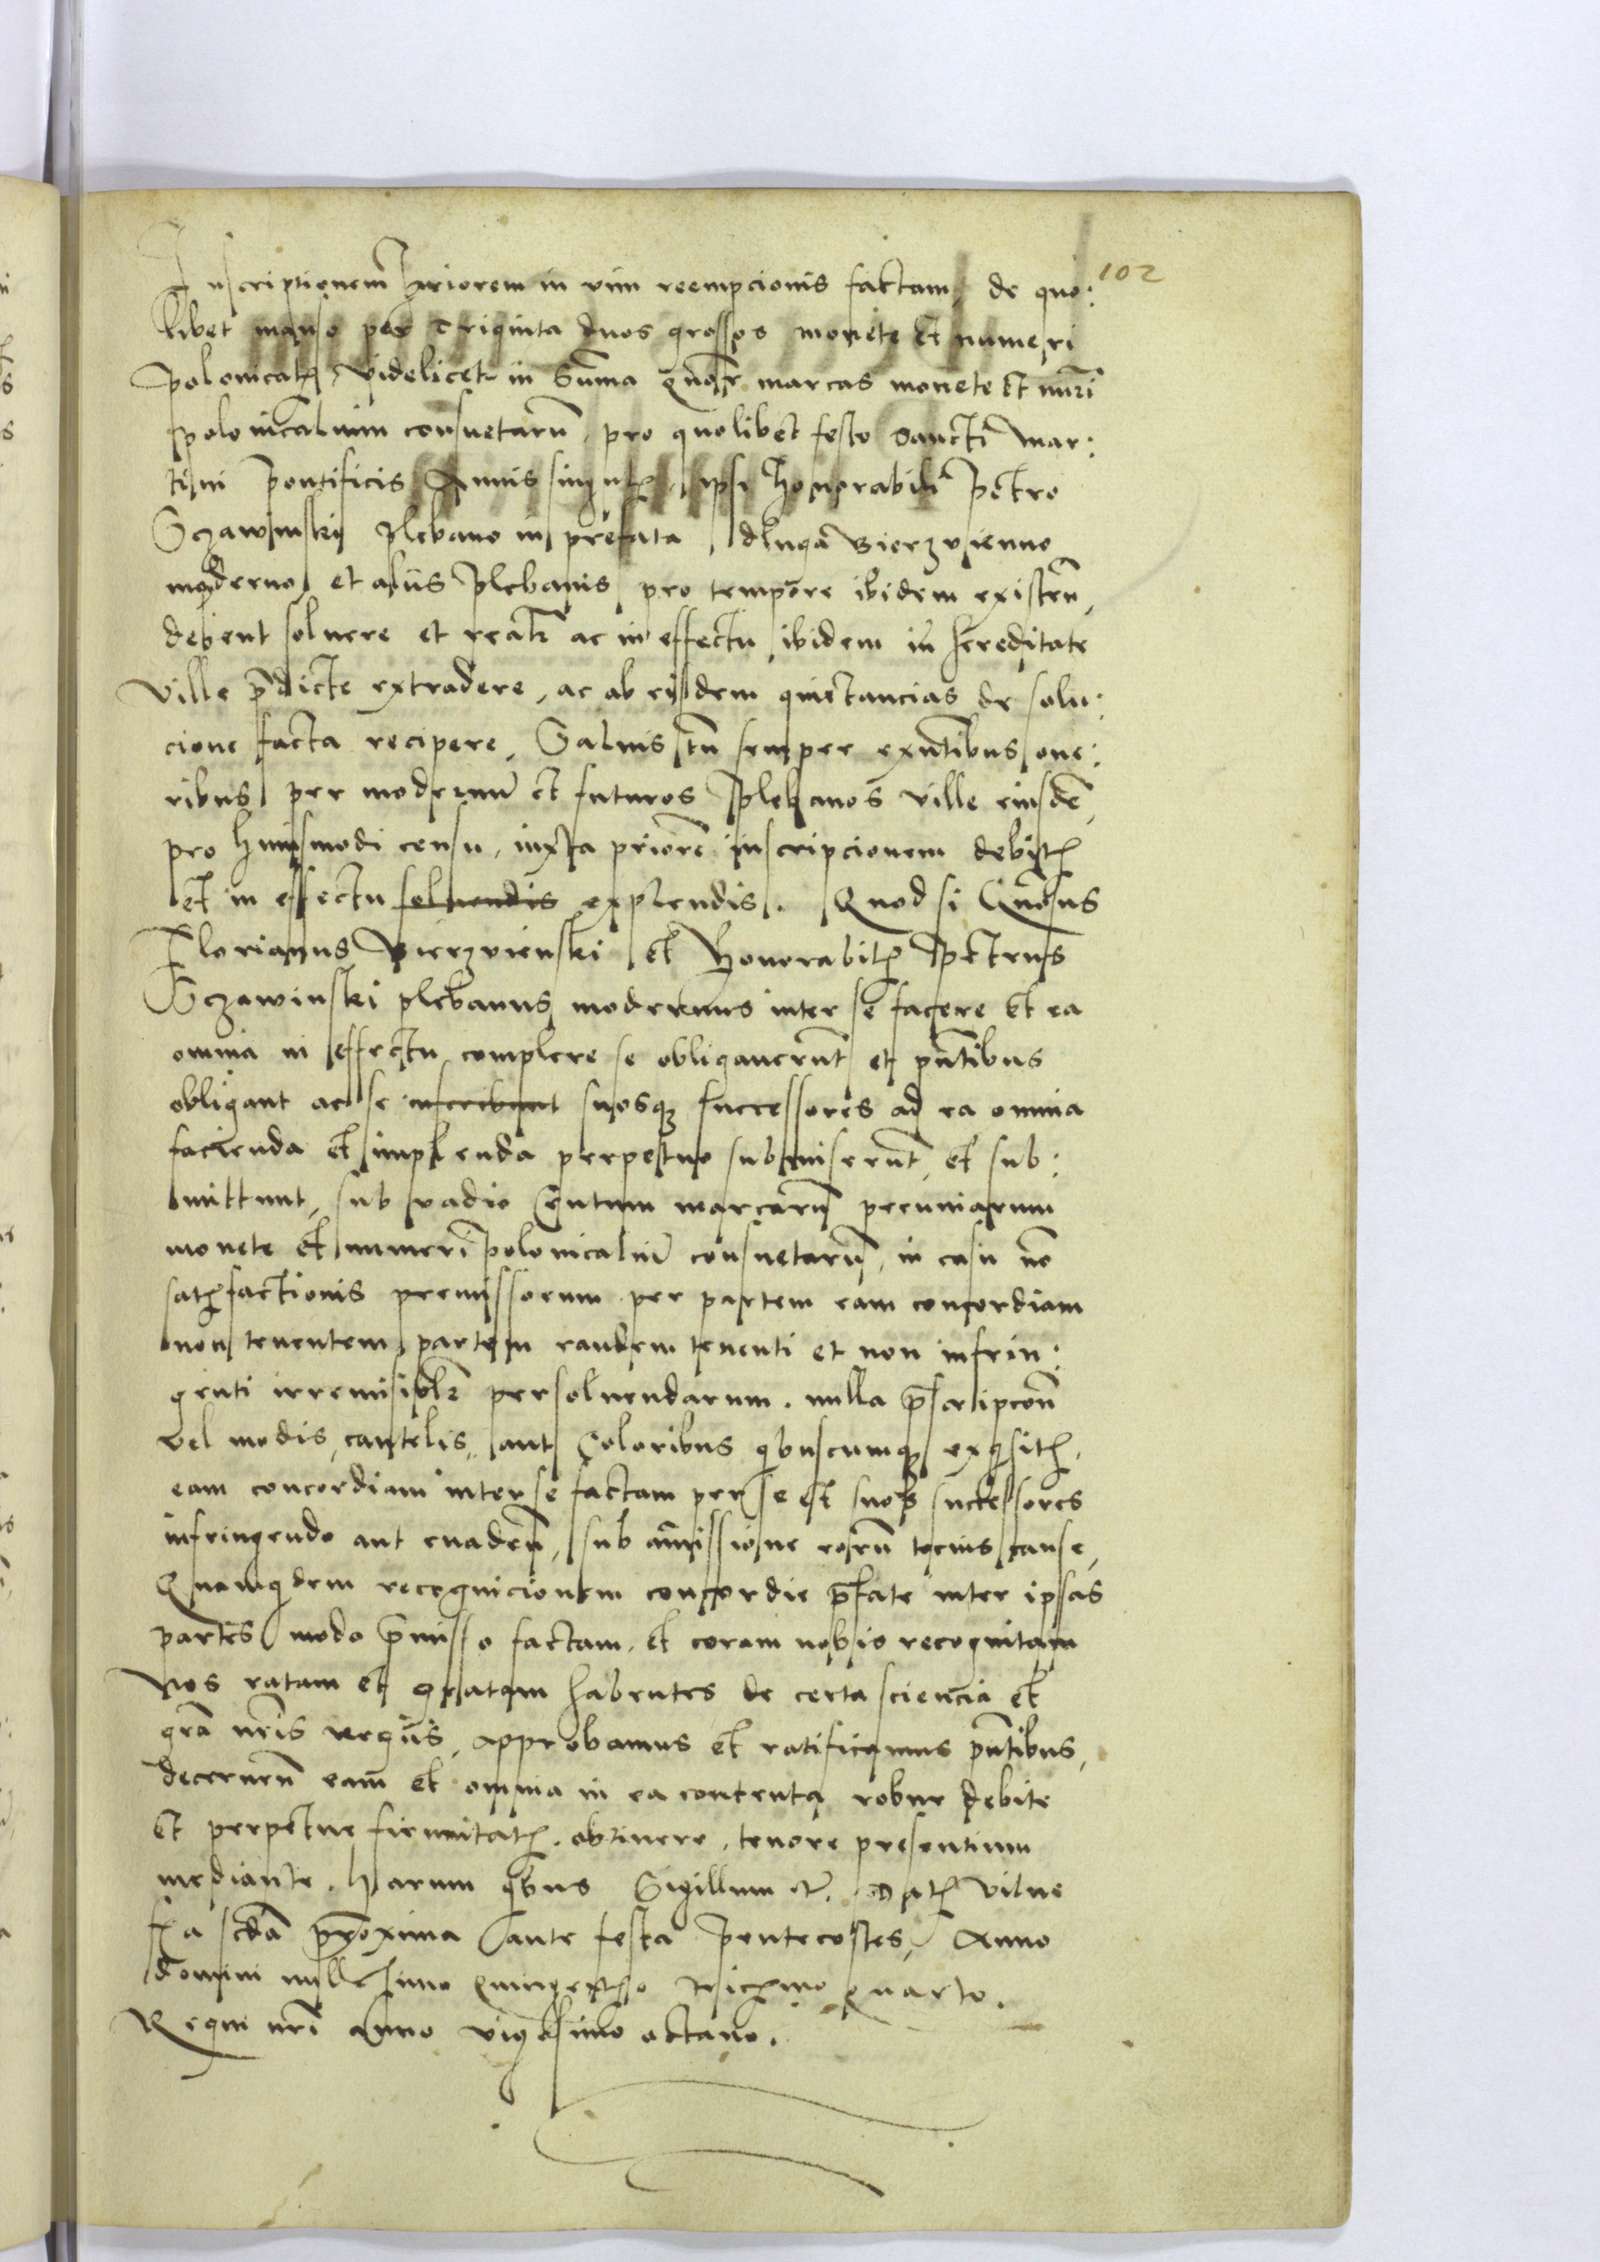 102
Inscriptionem priorem in vim reempcionis factam, de quo:
libet manso per Triginta duos grossos monete et numeri
polonicał, videlicet in Summa quatuor marcas monete et nūri
polonicalium consuetarū, pro quolibet festo Sancti Mar:
tini pontificis Annis singulis, ipsi honorabili Petro
Sczawinskij Plebano in prefata dluga Bierzvienno
moderno et aliis Plebanis pro tempore ibidem existen̄,
debent soluere et realr̄ ac in effectu ibidem in hereditate
ville p̄dicte extradere, ac ab eisdem quietancias de solu:
cione facta recipere, Saluis tn̄ semper exn̄tibus one:
ribus per modernū et futuros Plebanos ville eiusdē,
pro huiusmodi censu, iuxta priorē inscripcionem debitis
et in effectu soluendis explendis. Quod si Gn̄osus
Florianus Bierzvienski et Honorabilis Petrus
Sczawinski plebanus modernus inter se facere et ea
omnia in effectu complere se obligauerūt et pn̄tibus
obligant ac se inscribunt suosq successores ad ea omnia
facienda et implenda perpetuo submiserūt, et sub:
mittunt, sub vadio Centum marcarū pecuniarum
monete et numeri polonicaliū consuetarū, in casu nō
satisfactionis premissorum per partem eam concordiam
non tenentem, partem eandem tenenti et non infrin:
genti irremisiblr̄ persoluendarum. nulla p̄scripcōn
vel modis, cautelis, aut Coloribus q̄buscumq exq̄sitis,
eam concordiam inter se factam per se et suos successores
infringendo aut euaden̄, sub amissione eorū tocius cause,
Quamq̄dem recognicionem concordie p̄fate inter ipsas
partes modo p̄misso factam, et coram nobis recognitam
Nos ratam et gratam habentes de certa sciencia et
grā nr̄is regiis, approbamus et ratificamus pn̄tibus,
decernen̄ eam et omnia in ea contenta robur debite
et perpetue firmitatis obtinere, tenore presentium
mediante. Harum q̄bus Sigillum etc. Datum Vilne
fia scdā proxima ante festa Pentecostes, Anno
domini millesimo Quingentesimo tricesimo quarto.
Regni nr̄i Anno vigesimo octauo.